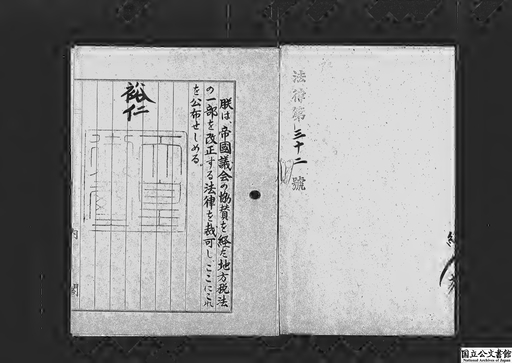 法律第三十二號
朕は、帝國議会の協賛を経た地方税法
の一部を改正する法律を裁可し、ここにこれ
を公布せしめる。
裕仁
内閣
国立公文書館
National Archives of Japan